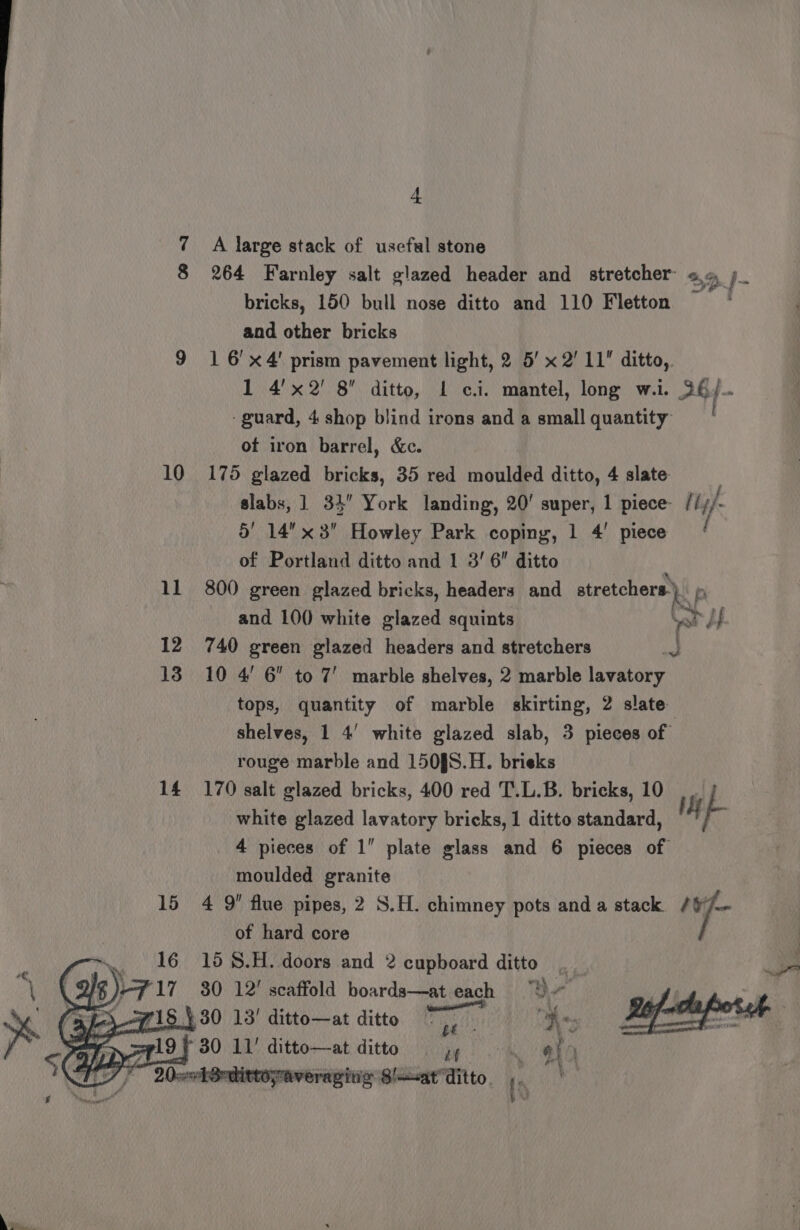 4
7 A large stack of useful stone
8 264 Farnley salt glazed header and stretcher
bricks, 150 bull nose ditto and 110 Fletton
and other bricks
9 1 6' x 4' prism pavement light, 2 5' x 2' 11" ditto,
1 4' x 2' 8" ditto, 1 c.i. mantel, long w.i. 36/-
guard, 4 shop blind irons and a small quantity
of iron barrel, &c.
10 175 glazed bricks, 35 red moulded ditto, 4 slate
slabs, 1 3½" York landing, 20' super, 1 piece
5' 14" x 3" Howley Park coping, 1 4' piece
of Portland ditto and 1 3' 6" ditto
11 800 green glazed bricks, headers and stretchers
and 100 white glazed squints
12 740 green glazed headers and stretchers
13 10 4' 6" to 7' marble shelves, 2 marble lavatory
tops, quantity of marble skirting, 2 slate
shelves, 1 4' white glazed slab, 3 pieces of
rouge marble and 150 S.H. bricks
14 170 salt glazed bricks, 400 red T.L.B. bricks, 10
white glazed lavatory bricks, 1 ditto standard,
4 pieces of 1" plate glass and 6 pieces of
moulded granite
15 4 9" flue pipes, 2 S.H. chimney pots and a stack
of hard core
16 15 S.H. doors and 2 cupboard ditto
17 30 12' scaffold boards—at each
18 30 13' ditto—at ditto
19 30 11' ditto—at ditto
20 ditto, averaging 8'—at ditto